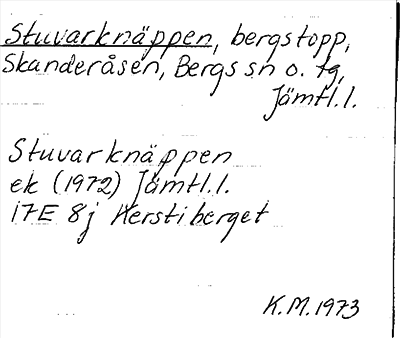 Stuvarknäppen, bergstopp,
Skanderåsen, Bergs sn o. tg,
Jämtl.l.
Stuvarknäppen
ek (1972) Jämtl.l.
17E 8j Herstiberget
K.M.1973